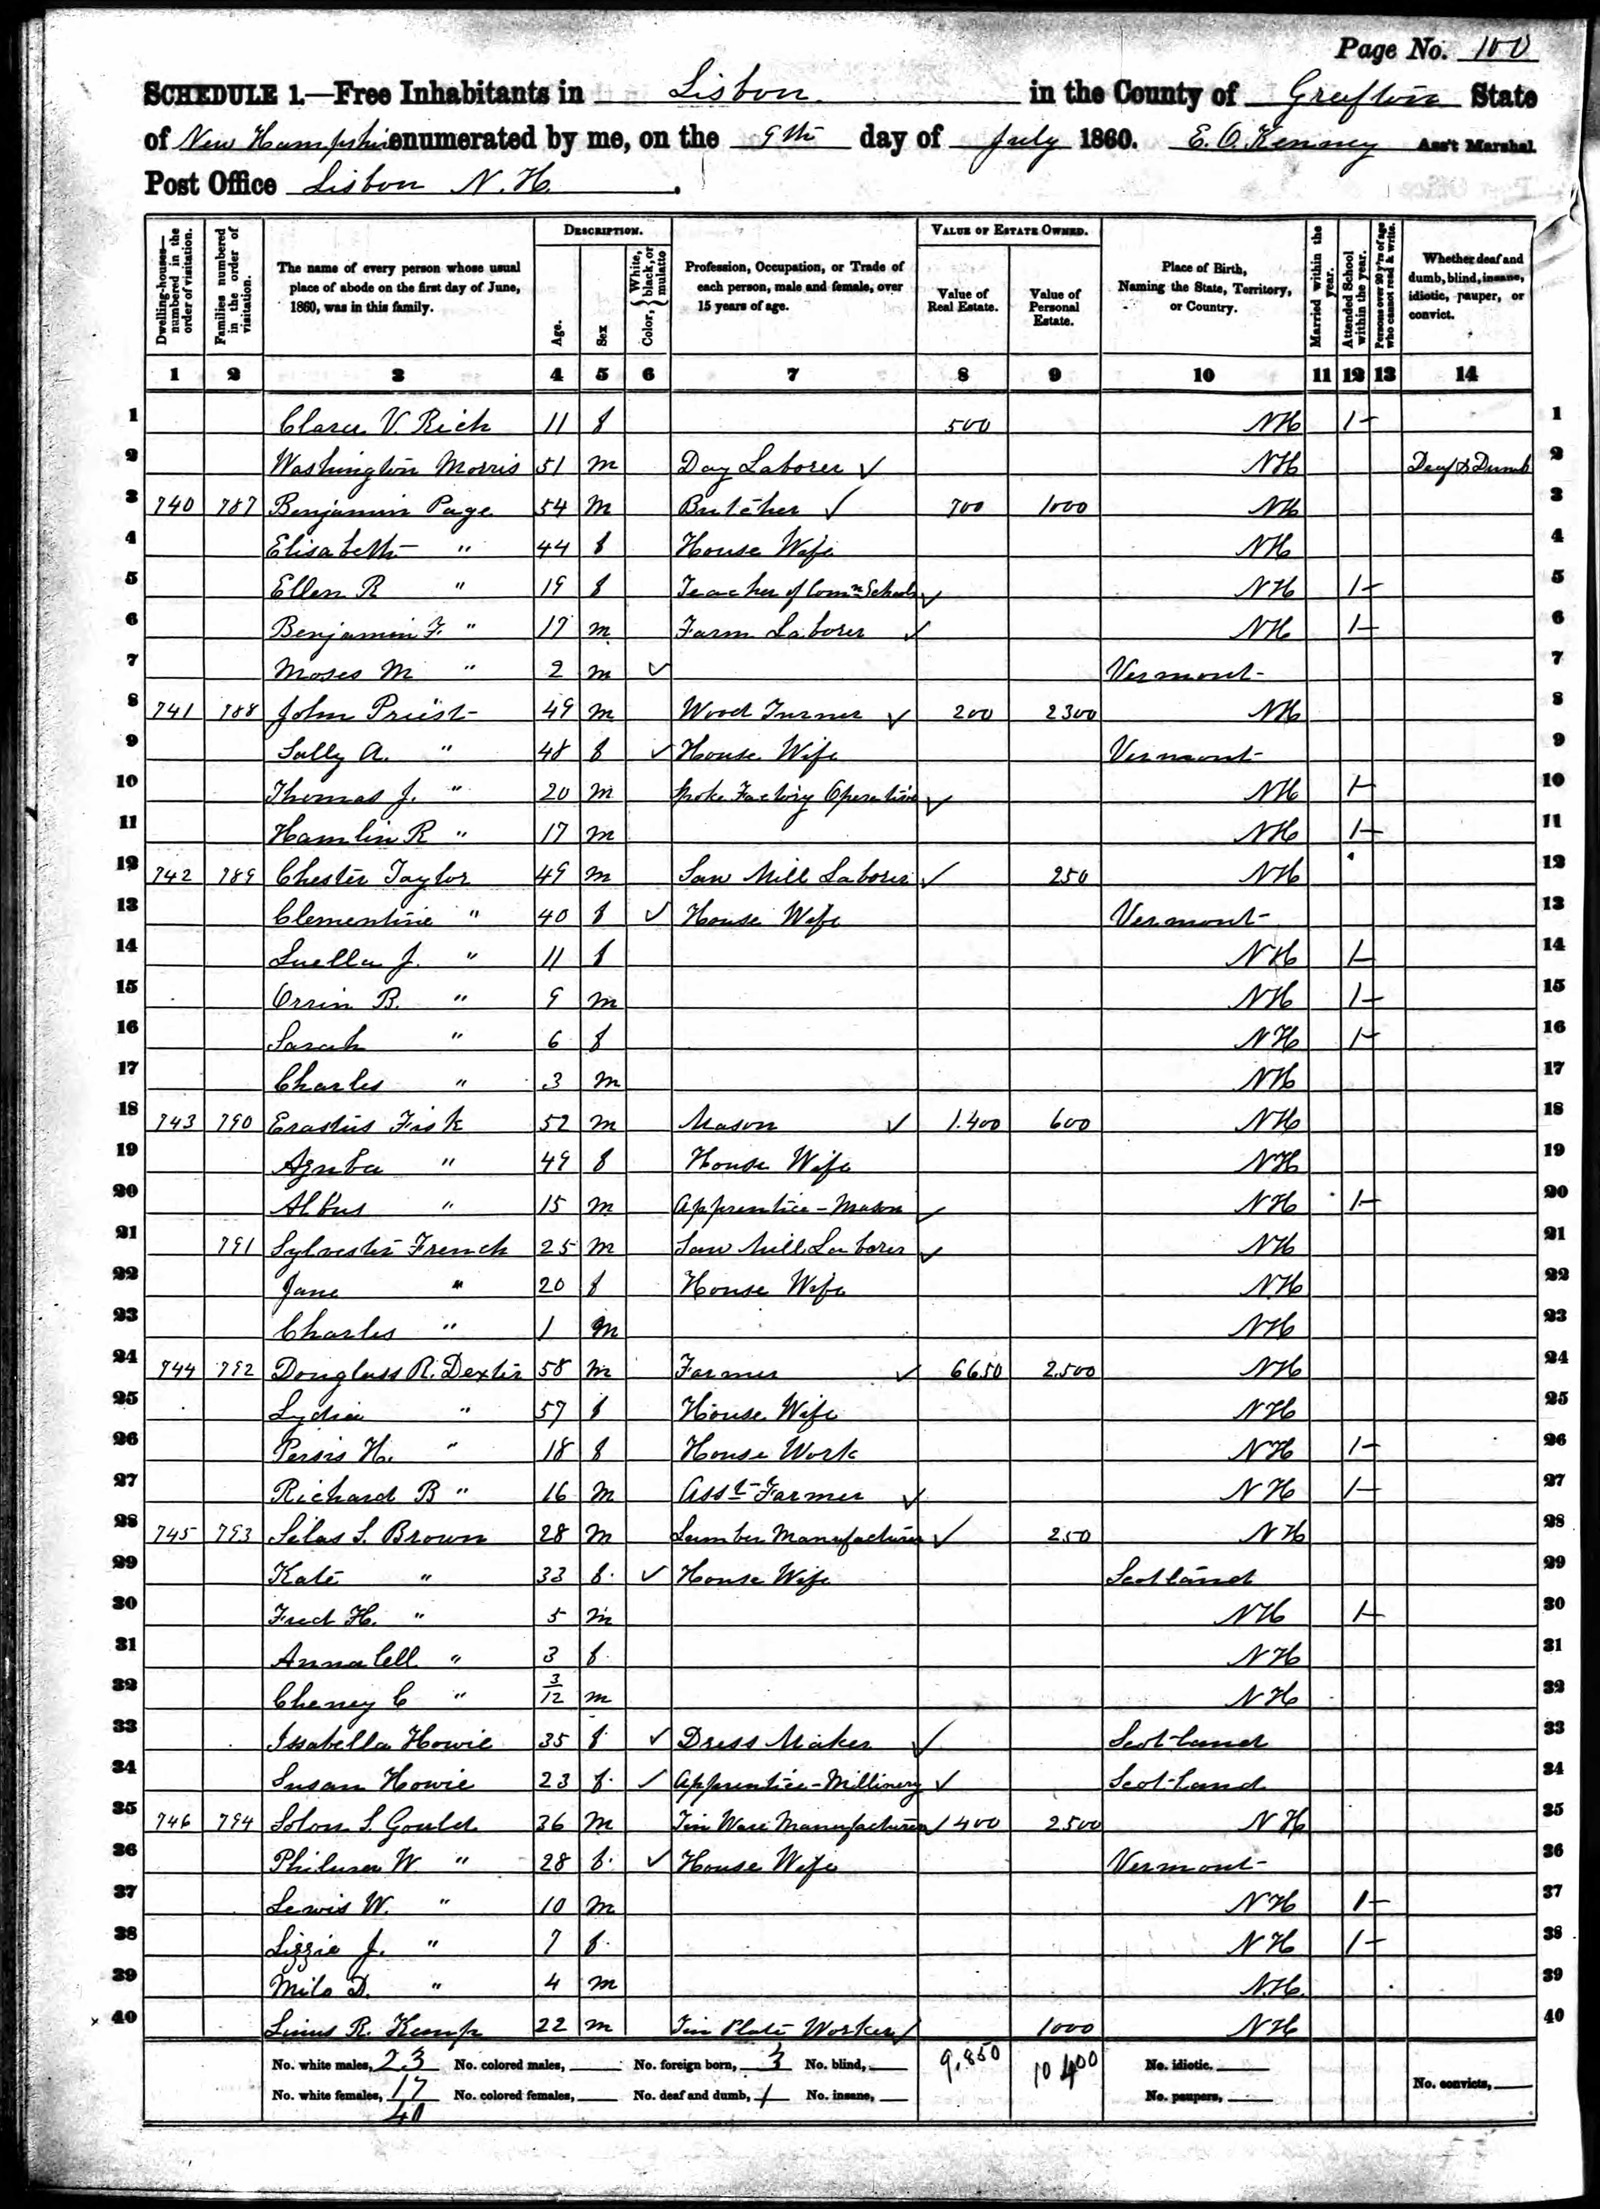 Page No. 100
SCHEDULE 1.—Free Inhabitants in Lisbon in the County of Grafton State
of New Hampshire enumerated by me, on the 9th day of July 1860. E. O. Kenney Ass't Marshal.
Post Office Lisbon N. H.
Dwelling-houses—numbered in the order of visitation. Families numbered in the order of visitation. The name of every person whose usual place of abode on the first day of June, 1860, was in this family. DESCRIPTION. Age. Sex Color, { White, black, or mulatto Profession, Occupation, or Trade of each person, male and female, over 15 years of age. VALUE OF ESTATE OWNED. Value of Real Estate. Value of Personal Estate. Place of Birth, Naming the State, Territory, or Country. Married within the year. Attended School within the year. Persons over 20 y'rs of age who cannot read & write. Whether deaf and dumb, blind, insane, idiotic, pauper, or convict.
1 2 3 4 5 6 7 8 9 10 11 12 13 14
1 Clara V. Rich 11 f 500 NH 1 1
2 Washington Morris 51 m Day Laborer ✓ NH Deaf & Dumb 2
3 740 787 Benjamin Page 54 m Butcher ✓ 700 1000 NH 3
4 Elisabeth " 44 f House Wife NH 4
5 Ellen R " 19 f Teacher of Comn Schools ✓ NH 1 5
6 Benjamin F. " 17 m Farm Laborer ✓ NH 1 6
7 Moses M " 2 m ✓ Vermont 7
8 741 788 John Priest 49 m Wood Turner ✓ 200 2300 NH 8
9 Sally A. " 48 f ✓ House Wife Vermont 9
10 Thomas J. " 20 m Spoke Factory Operative ✓ NH 1 10
11 Hamlin R " 17 m NH 1 11
12 742 789 Chester Taylor 49 m Saw Mill Laborer ✓ 250 NH 12
13 Clementine " 40 f ✓ House Wife Vermont 13
14 Luella J. " 11 f NH 1 14
15 Orrin B. " 9 m NH 1 15
16 Sarah " 6 f NH 1 16
17 Charles " 3 m NH 17
18 743 790 Erastus Fisk 52 m Mason ✓ 1.400 600 NH 18
19 Azuba " 49 f House Wife NH 19
20 Albus " 15 m Apprentice - Mason ✓ NH 1 20
21 791 Sylvester French 25 m Saw Mill Laborer ✓ NH 21
22 Jane " 20 f House Wife NH 22
23 Charles " 1 m NH 23
24 744 792 Douglass R. Dexter 58 m Farmer ✓ 6650 2.500 NH 24
25 Lydia " 57 f House Wife NH 25
26 Persis H. " 18 f House Work NH 1 26
27 Richard B " 16 m Asst Farmer ✓ NH 1 27
28 745 793 Silas S. Brown 28 m Lumber Manufacturer ✓ 250 NH 28
29 Kate " 33 f ✓ House Wife Scotland 29
30 Fred H. " 5 m NH 1 30
31 Annabell " 3 f NH 31
32 Cheney C " 3/12 m NH 32
33 Issabella Howie 35 f ✓ Dress Maker ✓ Scotland 33
34 Susan Howie 23 f ✓ Apprentice - Millinery ✓ Scotland 34
35 746 794 Solon S. Gould 36 m Tin Ware Manufacturer ✓ 1400 2500 NH 35
36 W " 28 f ✓ House Wife Vermont 36
37 Lewis W. " 10 m NH 1 37
38 Lizzie J. " 7 f NH 1 38
39 Milo D. " 4 m N.H. 39
40 R. Kemp 22 m Tin Plate Worker ✓ 1000 NH 40
No. white males, 23 No. colored males, No. foreign born, 3 No. blind, 9,850 10400 No. idiotic.
No. white females, 17 No. colored females, No. deaf and dumb, 1 No. insane, No. paupers, No. convicts,
40